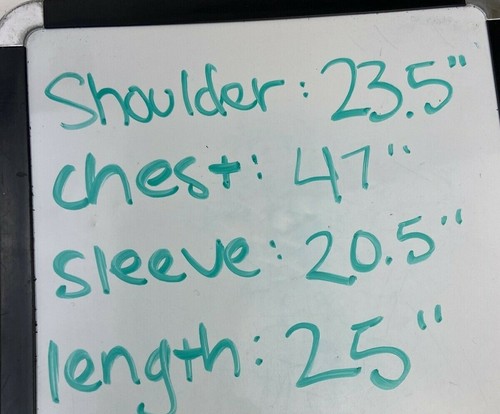 Shoulder: 23.5"
chest: 47"
sleeve: 20.5"
length: 25"